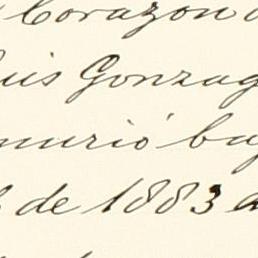 Corazon
uis Gonzag
murió baj
de 1883 a